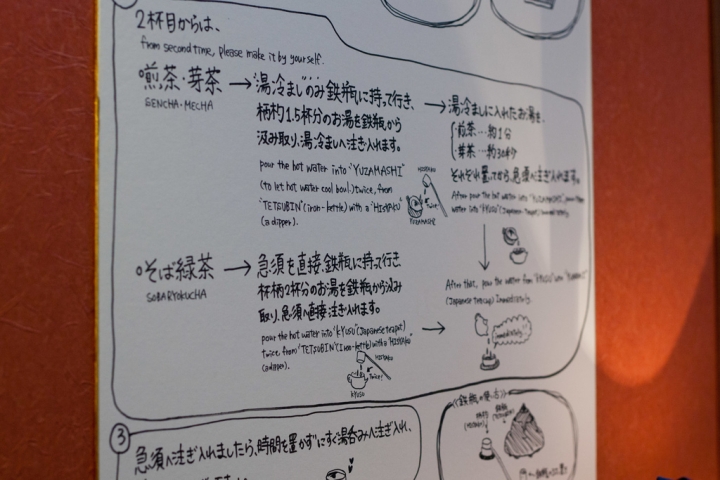 2杯目からは、
from second time, please make it by yourself.
煎茶・芽茶 → 湯冷ましのみ鉄瓶に持って行き、
SENCHA・MECHA
柄杓1.5杯分のお湯を鉄瓶から
汲み取り、湯冷ましへ注ぎ入れます。
pour the hot water into "YUZAMASHI"
(to let hot water cool boul.) twice, from
"TETSUBIN" (iron-kettle) with a "HISHAKU"
(a dipper).
HISHAKU
twice!
YUZAMASHI
→ 湯冷ましに入れたお湯を、
煎茶…約1分
芽茶…約30秒
それぞれ置いてから、急須へ注ぎ入れます。
After pour the hot water into "YUZAMASHI", pour
water into "kyusu" (Japanese teapot) immediately.
After that, pour the water from "kyusu" into
(Japanese teacup) immediately.
immediately
そば緑茶 → 急須を直接、鉄瓶に持って行き
SOBARYOKUCHA
杯柄2杯分のお湯を鉄瓶から汲み
取り、急須へ直接注ぎ入れます。
pour the hot water into "kyusu" (Japanese teapot)
twice, from "TETSUBIN" (iron-kettle) with a "HISHAKU"
(a dipper).
HISHAKU
twice!
kyusu
→
③
急須へ注ぎ入れましたら、時間を置かずにすぐ湯呑みへ注ぎ入れ、
<鉄瓶の使い方>